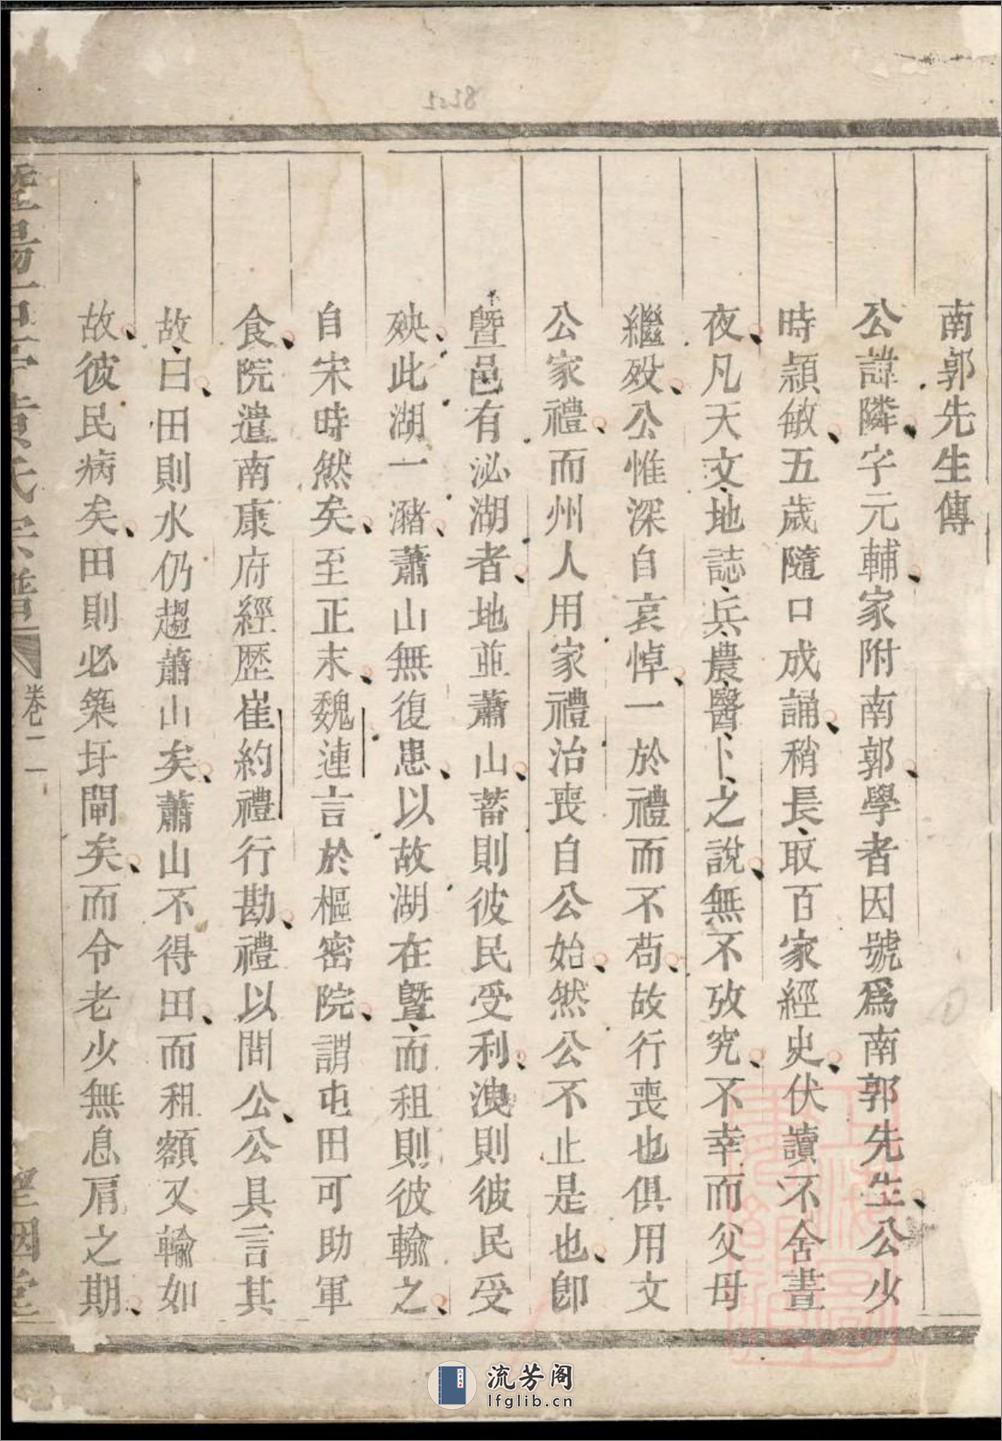 南郭先生傳
公諱隣字元輔家附南郭學者因號爲南郭先生公少
時顈敏五歲隨口成誦稍長取百家經史伏讀不舍晝
夜凡天文地誌兵農醫卜之說無不攷究不幸而父母
繼歿公惟深自哀悼一於禮而不苟故行喪也俱用文
公家禮而州人用家禮治喪自公始然公不止是也卽
曁邑有泌湖者地並蕭山蓄則彼民受利洩則彼民受
殃此湖一瀦蕭山無復患以故湖在曁而租則彼輸之
自宋時然矣至正末魏連言於樞密院謂屯田可助軍
食院遣南康府經歴崔約禮行勘禮以問公公具言其
故曰田則水仍趨蕭山矣蕭山不得田而租額又輸如
故彼民病矣田則必築圩閘矣而令老少無息肩之期
卷一
8212
流芳阁
lfglib.cn